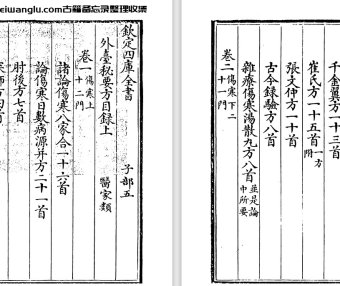 eiwanglu.com古籍备忘录整理收集
欽定四庫全書 子部五
外臺秘要方目錄上 醫家類
卷一 傷寒上一十二門
諸論傷寒八家合一十六首
論傷寒日數病源并方二十一首
肘後方七首
師方四首
千金翼方一十三首
崔氏方一十五首 一方附
張文仲方一十首
古今錄驗方八首
雜療傷寒湯散丸方八首 並是論中所要
卷二 傷寒下二十一門